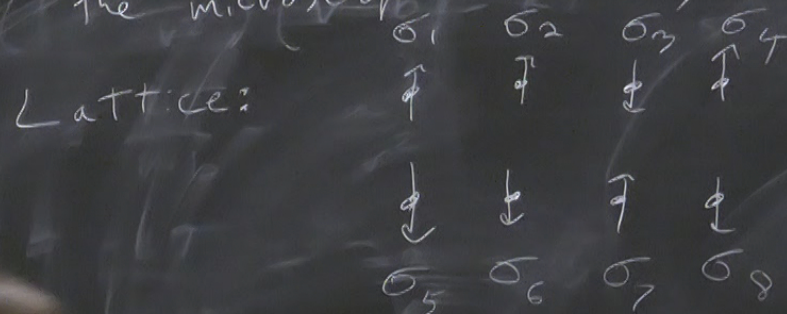 the micros
σ₁ σ₂ σ₃ σ₄
Lattice: ↑ ↑ ↓ ↑
↓ ↓ ↑ ↓
σ₅ σ₆ σ₇ σ₈